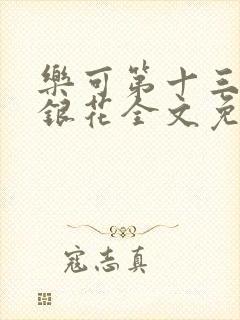 樂可第十三
銀花全文免
寇志真